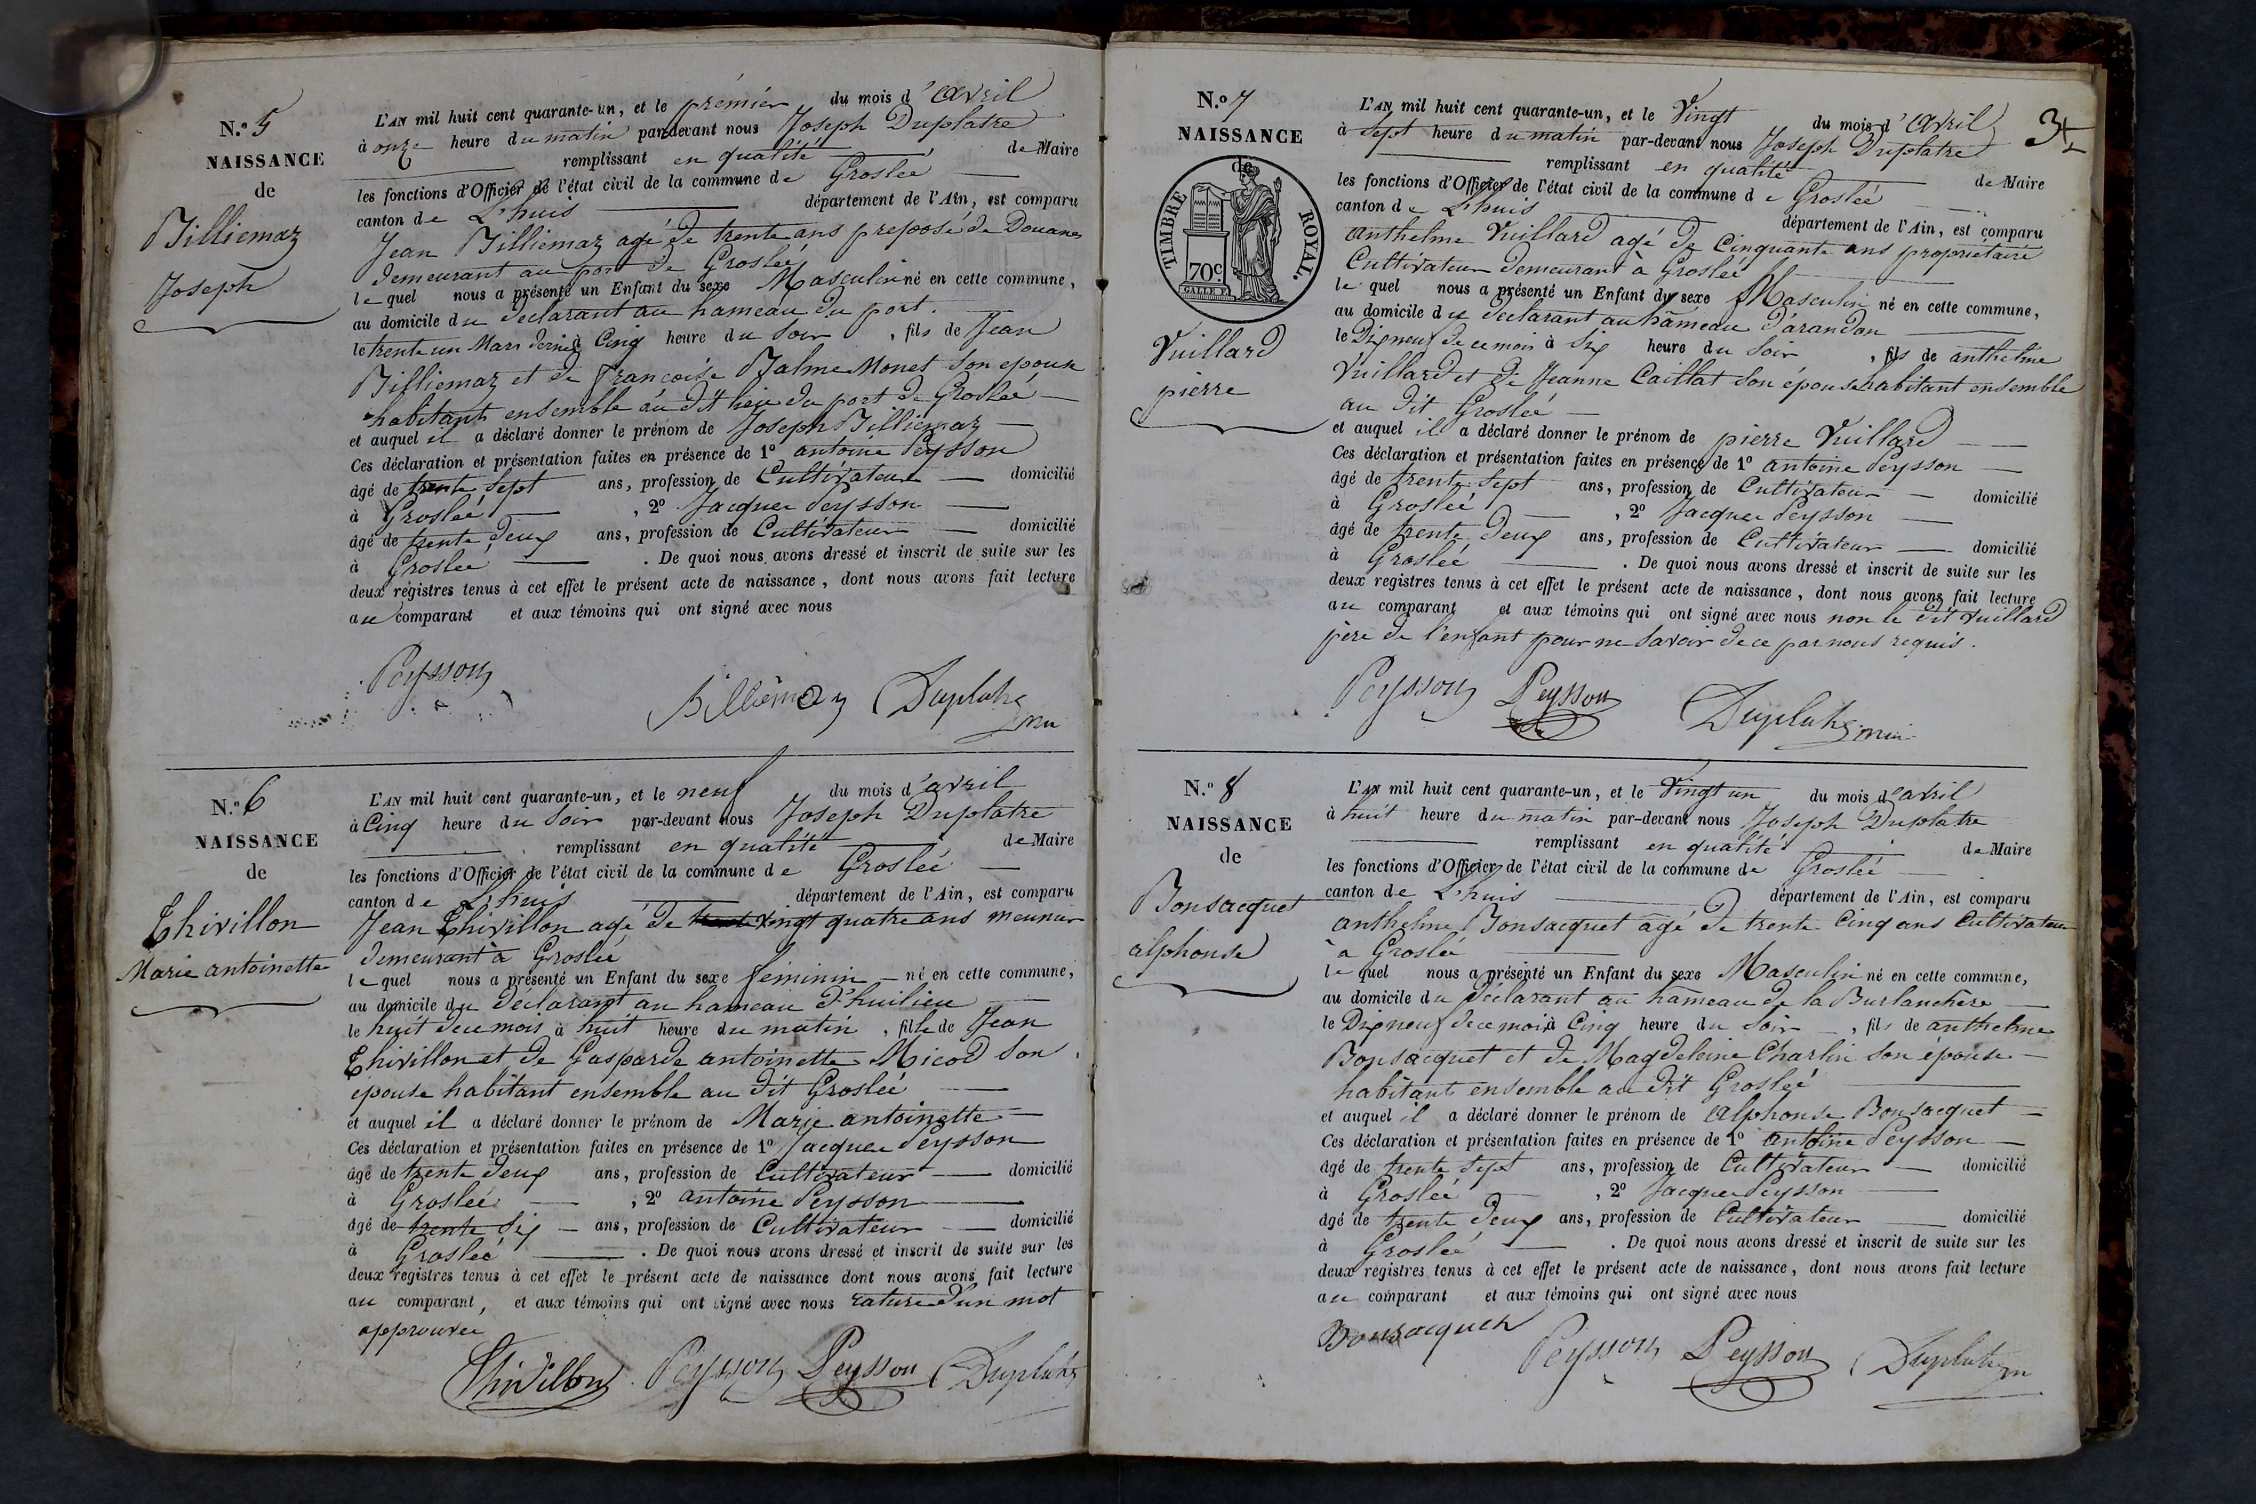 N.º 5
NAISSANCE
de
Billiemaz
Joseph
L'AN mil huit cent quarante-un, et le premier du mois d'avril
à onze heure du matin par-devant nous Joseph Duplatre
remplissant en qualité de Maire
les fonctions d'Officier de l'état civil de la commune de Groslée
canton de L'huis département de l'Ain, est comparu
Jean Billiemaz agé de trente ans preposé de Douanes
demeurant au port de Groslée
lequel nous a présenté un Enfant du sexe Masculin né en cette commune,
au domicile du declarant au hameau du port.
le trente un Mars dernier à Cinq heure du soir, fils de Jean
Billiemaz et de françoise Balme Monet son epouse
habitant ensemble au dit lieu du port de Groslée
et auquel il a déclaré donner le prénom de Joseph Billiemaz
Ces déclaration et présentation faites en présence de 1º antoine Peysson
âgé de trente sept ans, profession de Cultivateur domicilié
à Groslée, 2º Jacques Peysson
âgé de trente deux ans, profession de Cultivateur domicilié
à Groslée. De quoi nous avons dressé et inscrit de suite sur les
deux registres tenus à cet effet le présent acte de naissance, dont nous avons fait lecture
au comparant et aux témoins qui ont signé avec nous
Peysson Billiemaz Duplatre
N.º 6
NAISSANCE
de
Thivillon
Marie antoinette
L'AN mil huit cent quarante-un, et le neuf du mois d'avril
à Cinq heure du soir par-devant nous Joseph Duplatre
remplissant en qualité de Maire
les fonctions d'Officier de l'état civil de la commune de Groslée
canton de L'huis département de l'Ain, est comparu
Jean Thivillon agé de vingt quatre ans meunier
demeurant à Groslée
lequel nous a présenté un Enfant du sexe feminin né en cette commune,
au domicile du déclarant au hameau d'huilieu
le huit de ce mois à huit heure du matin, fille de Jean
Thivillon et de Gasparde antoinette Micod son
epouse habitant ensemble au dit Groslée
et auquel il a déclaré donner le prénom de Marie antoinette
Ces déclaration et présentation faites en présence de 1º Jacques Peysson
âgé de trente deux ans, profession de Cultivateur domicilié
à Groslée, 2º antoine Peysson
âgé de trente six ans, profession de Cultivateur domicilié
à Groslée. De quoi nous avons dressé et inscrit de suite sur les
deux registres tenus à cet effet le présent acte de naissance dont nous avons fait lecture
au comparant, et aux témoins qui ont signé avec nous rature d'un mot
approuvée
Thivillon Peysson Peysson Duplatre
34
N.º 7
NAISSANCE
de
TIMBRE ROYAL.
70c
GALLE F.
Vuillard
pierre
L'AN mil huit cent quarante-un, et le Vingt du mois d'avril
à sept heure du matin par-devant nous Joseph Duplatre
remplissant en qualité de Maire
les fonctions d'Officier de l'état civil de la commune de Groslée
canton de L'huis département de l'Ain, est comparu
anthelme Vuillard agé de Cinquante ans propriétaire
Cultivateur demeurant à Groslée
lequel nous a présenté un Enfant du sexe Masculin né en cette commune,
au domicile du declarant au hâmeau d'arandon
le Dix neuf de ce mois à Six heure du soir, fils de anthelme
Vuillard et de Jeanne Caillat son épouse habitant ensemble
au dit Groslée
et auquel il a déclaré donner le prénom de pierre Vuillard
Ces déclaration et présentation faites en présence de 1º antoine Peysson
âgé de trente sept ans, profession de Cultivateur domicilié
à Groslée, 2º Jacques Peysson
âgé de trente deux ans, profession de Cultivateur domicilié
à Groslée. De quoi nous avons dressé et inscrit de suite sur les
deux registres tenus à cet effet le présent acte de naissance, dont nous avons fait lecture
au comparant et aux témoins qui ont signé avec nous non le dit vuillard
père de l'enfant pour ne savoir de ce par nous requis.
Peysson Peysson Duplatre
N.º 8
NAISSANCE
de
Bonsacquet
alphonse
L'AN mil huit cent quarante-un, et le Vingt un du mois d'avril
à huit heure du matin par-devant nous Joseph Duplatre
remplissant en qualité de Maire
les fonctions d'Officier de l'état civil de la commune de Groslée
canton de L'huis département de l'Ain, est comparu
anthelme Bonsacquet âgé de trente Cinq ans Cultivateur
à Groslée
lequel nous a présenté un Enfant du sexe Masculin né en cette commune,
au domicile du déclarant au hâmeau de la Burlanchère
le Dix neuf de ce mois à Cinq heure du soir, fils de anthelme
Bonsacquet et de Magdeleine Charlin son épouse
habitant ensemble au dit Groslée
et auquel il a déclaré donner le prénom de alphonse Bonsacquet
Ces déclaration et présentation faites en présence de 1º antoine Peysson
âgé de trente sept ans, profession de Cultivateur domicilié
à Groslée, 2º Jacques Peysson
âgé de trente deux ans, profession de Cultivateur domicilié
à Groslée. De quoi nous avons dressé et inscrit de suite sur les
deux registres tenus à cet effet le présent acte de naissance, dont nous avons fait lecture
au comparant et aux témoins qui ont signé avec nous
Bonsacquet Peysson Peysson Duplatre